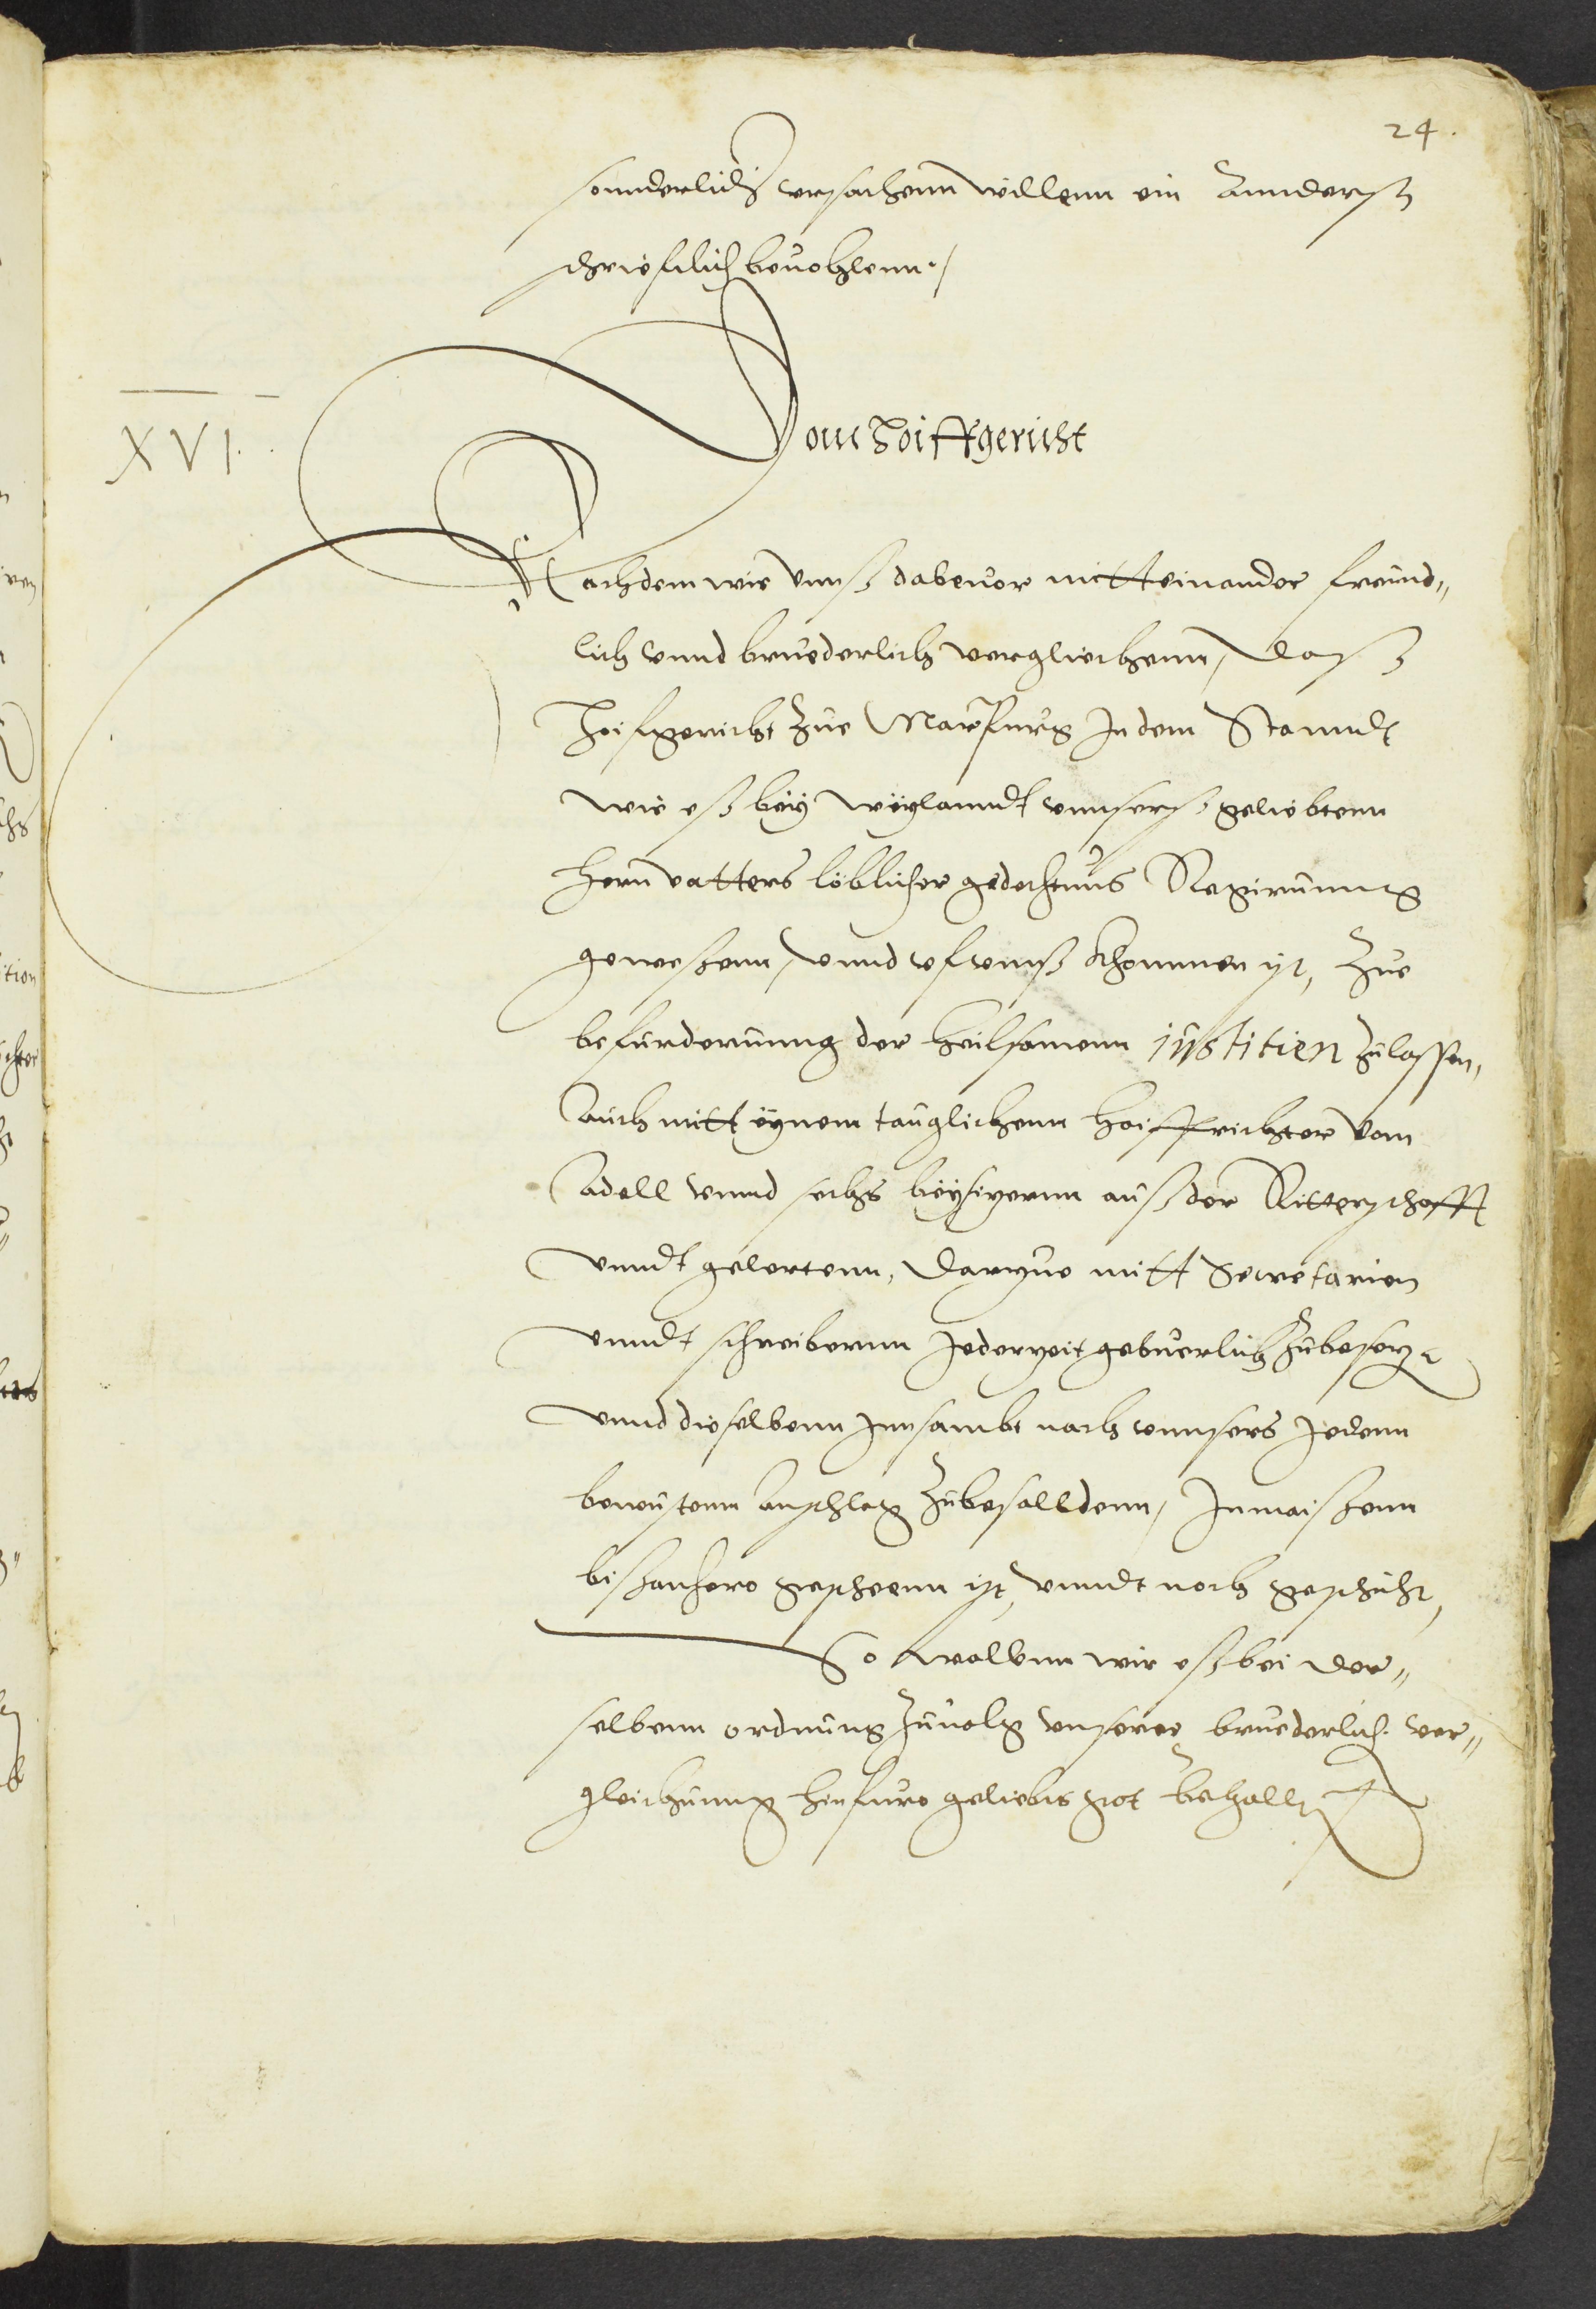 24.
sonnderlicher vrsachenn willenn ein Annderß
schriefftlich beuohlenn./
XVI.
Vom Hoiffgericht
Nachdem wir vnnß dabeuor mitt einander freund„
lich vnnd bruederlich vergliechenn, Daß
Hoifgericht Zue Marpurg In dem Stanndt
wie eß bey weylanndt vnnserß geliebtenn
hern vatters löblicher gedechtnus Regirunng
geweßenn, vnnd vf vnnß khommen ist, Zue
befurderunng der heilsamenn justitien zulassen,
Auch mitt eynem tauglichenn Hoiffrichter vom
Adell vnnd sechs beysizernn auß der Ritterschafft
vnndt gelertenn, Darzue mitt Secretarien
vnndt schreibernn Jederzeit gebuerlich Zubesezen
vnnd dieselbenn Innsambt nach vnnsers Jedenn
bewustenn Anschlag Zubesalldenn, Inmaißenn
bißanhero gescheenn ist, vnndt noch geschicht,
So wollenn wir eß bei der„
selbenn ordnung Zuuolg vnserer bruederlich. ver„
gleichunng hinfuro geliebts got behallten